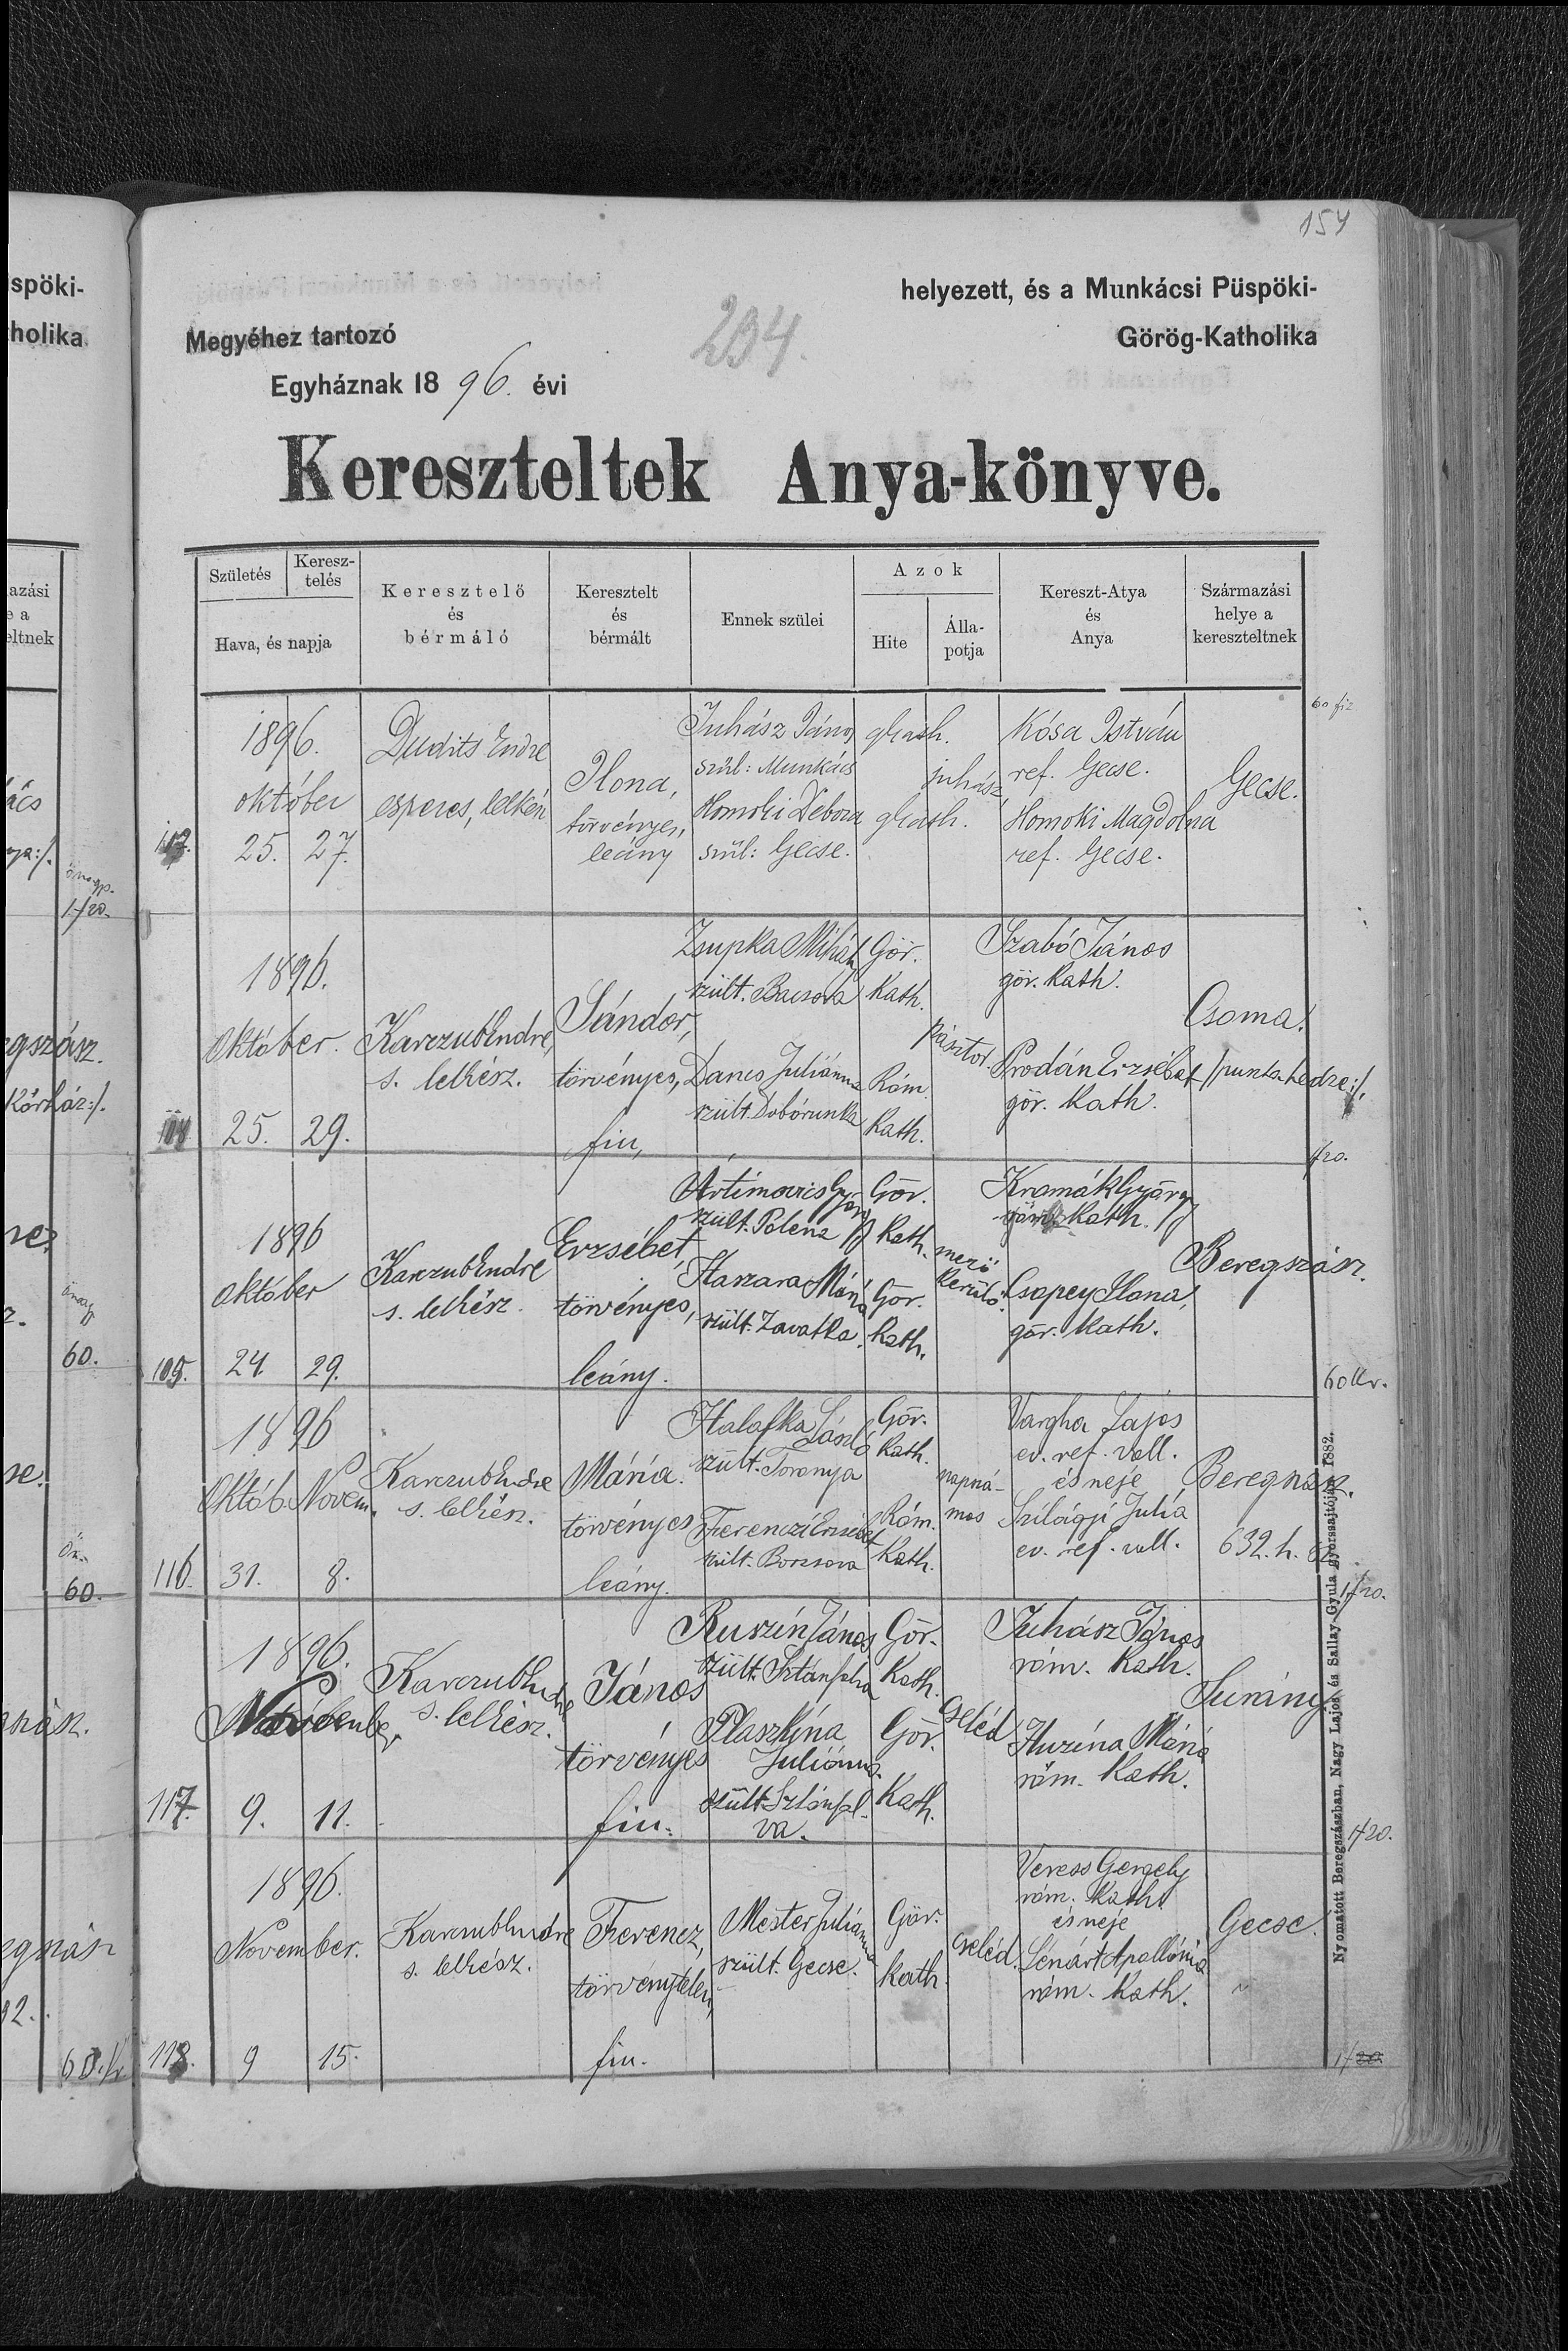 154
helyezett, és a Munkácsi Püspöki-
Megyéhez tartozó
234.
Görög-Katholika
Egyháznak 1896. évi
Kereszteltek Anya-könyve.
Születés
Keresz-
telés
Hava, és napja
Keresztelő
és
bérmáló
Keresztelt
és
bérmált
Ennek szülei
Azok
Hite
Álla-
potja
Kereszt-Atya
és
Anya
Származási
helye a
kereszteltnek
60 fiz
1896.
október
25. 27.
Dudits Endre
esperes, lelkész
Ilona,
törvényes,
leány
Juhász János
szül: Munkács
Homoki Débora
szül: Gecse.
gkath.
gkath.
juhász
Kósa István
ref. Gecse.
Homoki Magdolna
ref. Gecse.
Gecse.
1896.
Október.
25. 29.
Karczub Endre,
s. lelkész.
Sándor,
törvényes,
fiu,
Zsupka Mihály
szült. Bacsova
Dancs Juliánna
szült. Dobórunka
Gör.
Kath.
Róm.
Kath.
pásztor.
Szabó János
gör. kath.
Prodán Erzsébet
gör. Kath.
Csoma.
1f20.
105.
1896
Október
24. 29.
Karczub Endre
s. lelkész.
Erzsébet,
törvényes,
leány.
Artimovics György
szült. Polena
Haszara Mária
szült. Zavatka.
Gör.
Kath.
Gör.
Kath.
mező
kerülő.
Kramák György
gör. Kath.
Csapey Ilona,
gör. Kath.
Beregszász.
60 kr.
116.
1896
Októb. Novem.
31. 8.
Karczub Endre
s. lelkész.
Mária.
törvényes
leány.
Halafka László
szült. Toronya
Ferenczi Erzsébet
szült. Borzsova
Gör.
Kath.
Róm.
Kath.
napszá-
mos
Vargha Lajos
ev. ref. vall.
és neje
Szilágyi Julia
ev. ref. vall.
Beregszász.
632. h. sz.
1f20.
117.
1896.
November
9. 11.
Karczub Endre
s. lelkész.
János
törvényes
fiu.
Ruszín János
szült. Sztánfalva
Plaszkina
Juliánna.
szült. Sztánfal-
va.
Gör.
Kath.
Gör.
Kath.
cseléd
Juhász János
róm. Kath.
Huzina Mária
róm. Kath.
Surány
1f20.
118.
1896.
November.
9 15.
Karczub Endre
s. lelkész.
Ferencz,
törvénytelen,
fiu.
Mester Juliánna
szült. Gecse.
Gör.
Kath.
cseléd.
Veress Gergely
róm. Kath.
és neje
Lénárt Apollónia
róm. Kath.
Gecse.
1f20
Nyomatott Beregszászban, Nagy Lajos és Sallay Gyula gyorssajtóján 1882.
spöki-
tholika
azási
e a
eltnek
ács
1f20.
egszász.
Kórház:/.
60.
60.